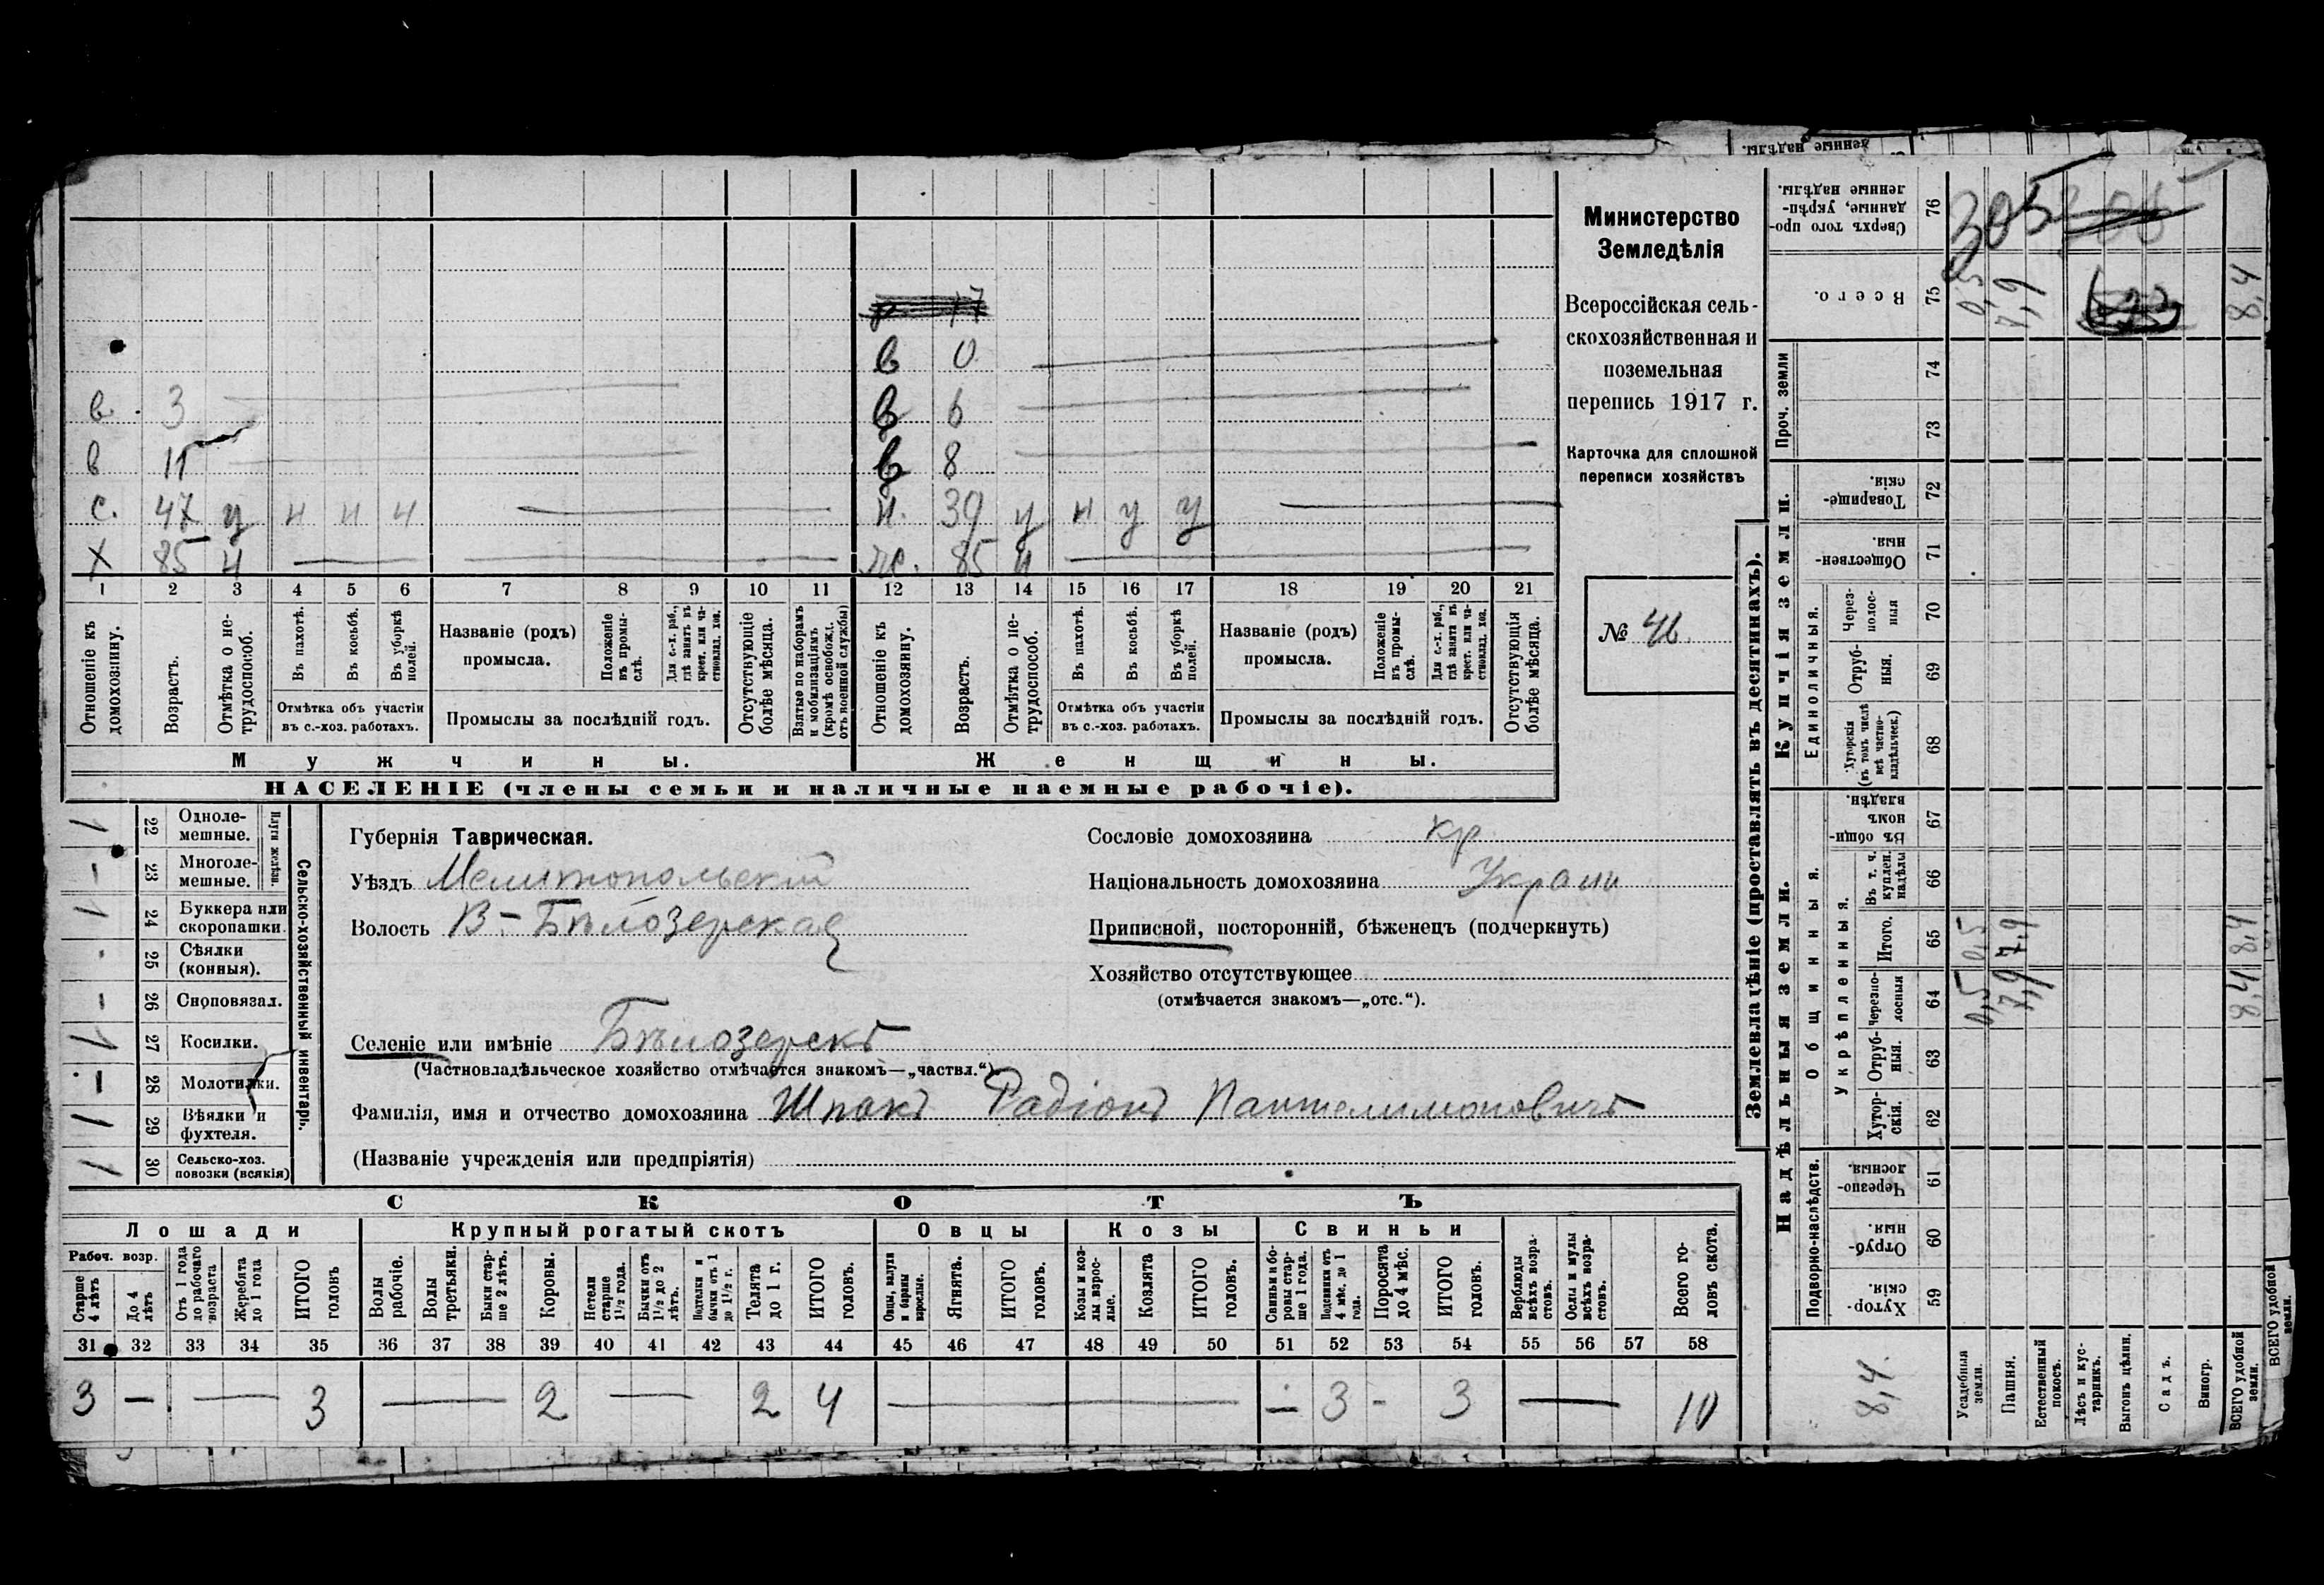 денные надѣлы.
р 17
в 0
в. 3 в 6
в 11 в 8
с. 47 у н н н н. 39 у н у у
х 85 н ж. 85 н
1 2 3 4 5 6 7 8 9 10 11 12 13 14 15 16 17 18 19 20 21
Отношеніе къ домохозяину.
Возрастъ.
Отмѣтка о нетрудоспособ.
Въ пахотѣ.
Въ косьбѣ.
Въ уборкѣ полей.
Отмѣтка объ участіи
въ с.-хоз. работахъ.
Названіе (родъ)
промысла.
Положеніе въ промыслѣ.
Для с.-х. раб., гдѣ занятъ въ крест. или частновлад. хоз.
Промыслы за послѣдній годъ.
Отсутствующіе болѣе мѣсяца.
Взятые по наборамъ и мобилизаціямъ (кромѣ освобожд. отъ военной службы)
Отношеніе къ домохозяину.
Возрастъ.
Отмѣтка о нетрудоспособ.
Въ пахотѣ.
Въ косьбѣ.
Въ уборкѣ полей.
Отмѣтка объ участіи
въ с.-хоз. работахъ.
Названіе (родъ)
промысла.
Положеніе въ промыслѣ.
Для с.-х. раб., гдѣ занята въ крест. или частновлад. хоз.
Промыслы за послѣдній годъ.
Отсутствующія болѣе мѣсяца.
Мужчины. Женщины.
НАСЕЛЕНІЕ (члены семьи и наличные наемные рабочіе).
Министерство
Земледѣлія
Всероссійская сель-
скохозяйственная и
поземельная
перепись 1917 г.
Карточка для сплошной
переписи хозяйствъ
№ 46
22 Одноле-
мешные.
23 Многоле-
мешные.
Плуги желѣзн.
24 Буккера или
скоропашки.
25 Сѣялки
(конныя).
26 Сноповязал.
27 Косилки.
28 Молотилки.
29 Вѣялки и
фухтеля.
30 Сельско-хоз.
повозки (всякія)
Сельско-хозяйственный инвентарь.
Губернія Таврическая.
Уѣздъ Мелитопольскій
Волость В-Бѣлозерская
Селеніе или имѣніе Бѣлозерскъ
(Частновладѣльческое хозяйство отмѣчается знакомъ—„частвл.“).
Фамилія, имя и отчество домохозяина Шпакъ Радіонъ Пантелимоновичъ
(Названіе учрежденія или предпріятія)
Сословіе домохозяина кр
Національность домохозяина Украин
Приписной, посторонній, бѣженецъ (подчеркнуть)
Хозяйство отсутствующее
(отмѣчается знакомъ—„отс.“).
СКОТЪ
Лошади Крупный рогатый скотъ Овцы Козы Свиньи
Рабоч. возр.
Старше 4 лѣтъ
До 4 лѣтъ
Отъ 1 года до рабочаго возраста
Жеребята до 1 года
ИТОГО головъ
Волы рабочіе.
Волы третьяки.
Быки старше 2 лѣтъ.
Коровы.
Нетели старше 1½ года.
Бычки отъ 1½ до 2 лѣтъ.
Подтелки и бычки отъ 1 до 1½ г.
Телята до 1 г.
ИТОГО головъ.
Овцы, валухи и бараны взрослые.
Ягнята.
ИТОГО головъ.
Козы и козлы взрослые.
Козлята
ИТОГО головъ.
Свиньи и боровы старше 1 года.
Подсвинки отъ 4 мѣс. до 1 года.
Поросята до 4 мѣс.
ИТОГО головъ.
Верблюды всѣхъ возрастовъ.
Ослы и мулы всѣхъ возрастовъ.
Всего головъ скота.
31 32 33 34 35 36 37 38 39 40 41 42 43 44 45 46 47 48 49 50 51 52 53 54 55 56 57 58
3 — — 3 — 2 — 2 4 — — 3 - 3 — 10
Землевладѣніе (проставлять въ десятинахъ).
Надѣльныя земли. Купчія земли. Проч. земли
Подворно-наслѣдств.
Общинныя.
Укрѣпленныя.
Единоличныя.
Хуторскія. 59
Отрубныя. 60
Черезполосныя. 61
Хуторскія. 62
Отрубныя. 63
Черезполосныя 64
Итого. 65
Въ т. ч. куплен. надѣлы 66
Въ общинномъ владѣн. 67
Хуторскія (въ томъ числѣ всѣ частновладѣльческ.) 68
Отрубныя. 69
Черезполосныя 70
Общественныя. 71
Товарищескія. 72
73
74
Всего. 75
Сверхъ того проданные, укрѣпленные надѣлы. 76
8,4.
Усадебныя земли. 0,5 0,5 0,5
Пашня. 7,9 7,9 7,9
Естественный покосъ.
Лѣсъ и кустарникъ.
Выгонъ цѣлин.
Садъ.
Виногр.
ВСЕГО удобной земли. 8,4 8,4 8,4
305
ВСЕГО удобной земли.